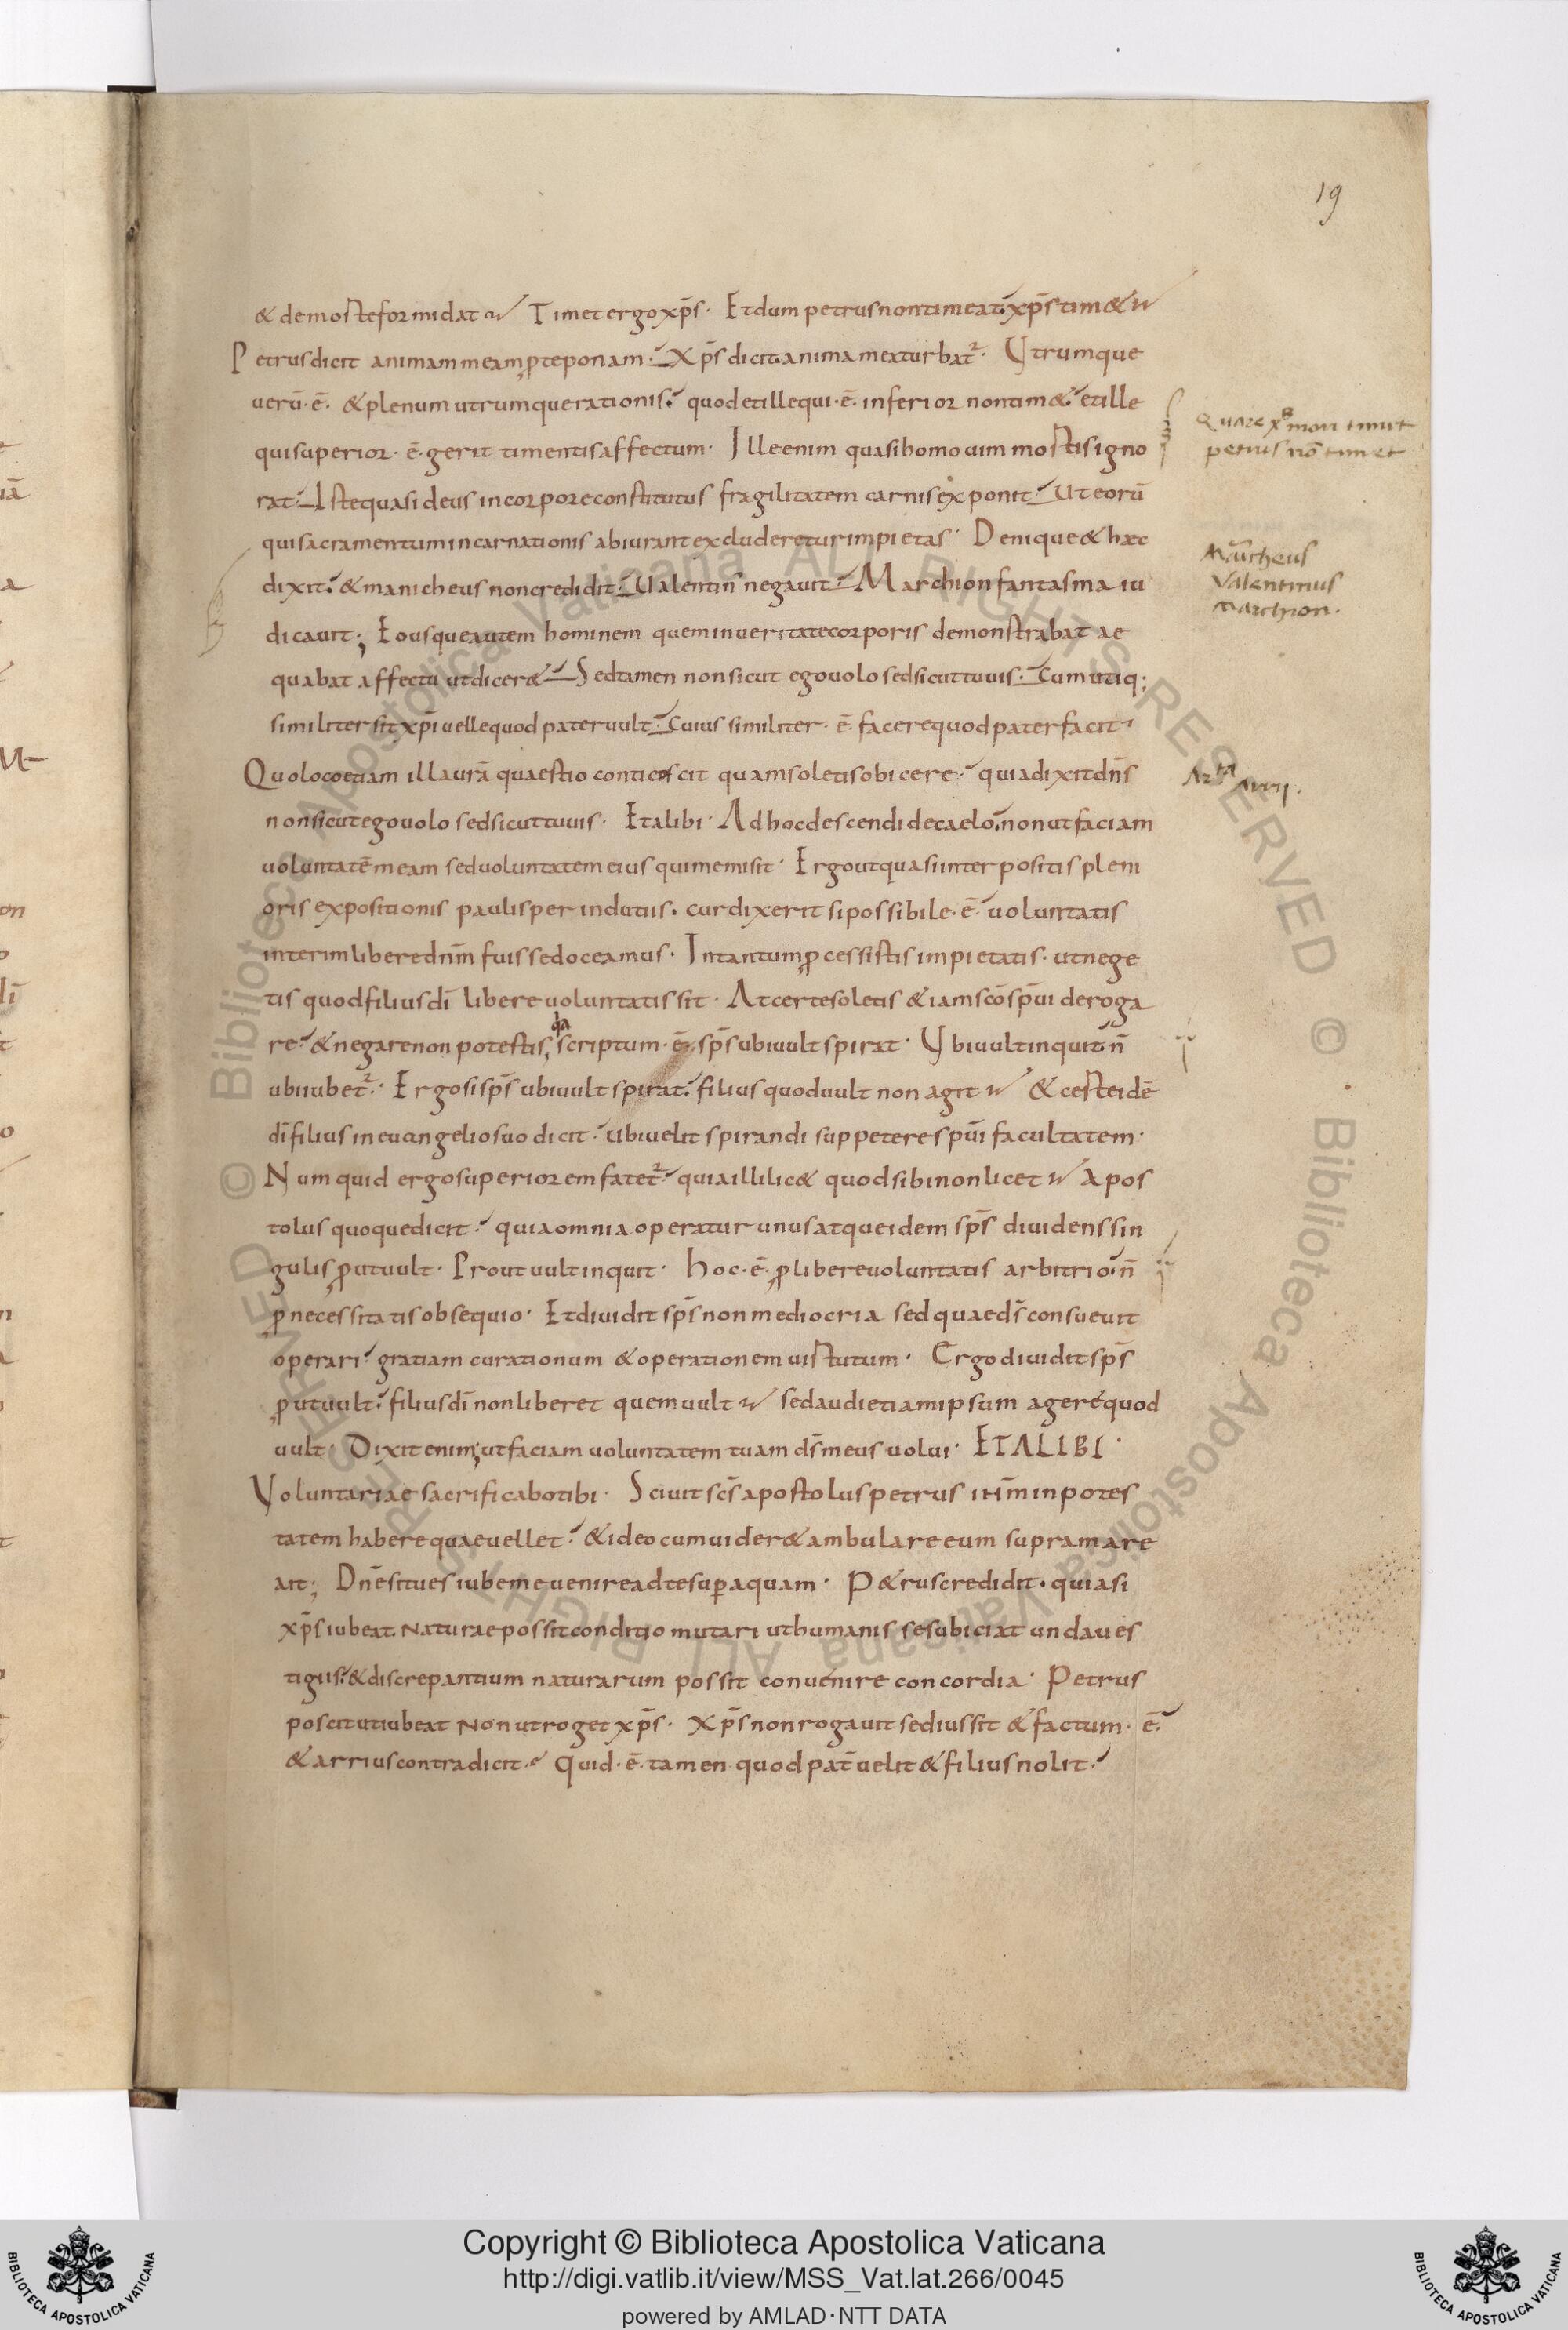 19
& demorte formidat Timet ergo xp̄s. Et dum petrus non timeat xp̄s tim&
Petrus dicit animam meam p te ponam. Xp̄s dicit anima mea turbat̉. Utrumque
uerū. ē. & plenum utrumque rationis. quod et ille qui. ē. inferior non tim&. et ille
qui superior. ē. gerit timentis affectum. Ille enim quasi homo uim mortis igno
rat. Iste quasi deus in corpore constitutus fragilitatem carnis exponit. Ut eorū
qui sacramentum incarnationis abiurant excluderetur impietas. Denique & haec
dixit. & manicheus non credidit. Ualentin̄ negauit. Marchion fantasma iu
dicauit; Eousque autem hominem quem in ueritate corporis demonstrabat ae
quabat affectu ut dicer&. Sed tamen non sicut ego uolo sed sicut tu uis. Cum utiq;
similiter sit xp̄i uelle quod pater uult. Cuius similiter. ē. facere quod pater facit
Quo loco etiam illa urā quaestio conticescit quam soletis obicere. quia dixit dn̄s
non sicut ego uolo sed sicut tu uis. Et alibi. Ad hoc descendi de caelo. non ut faciam
uoluntatē meam sed uoluntatem eius qui me misit. Ergo ut quasi interpositis pleni
oris expositionis paulisper indutiis. cur dixerit si possibile. ē. uoluntatis
interim libere dn̄m fuisse doceamus. In tantum pcessistis impietatis. ut nege
tis quod filius dī libere uoluntatis sit. At certe soletis & iam scō spūi deroga
re. & negare non potestis, qa scriptum. ē. sp̄s ubi uult spirat. Ubi uult inquit n̄
ubi iubet̉. Ergo si sp̄s ubi uult spirat. filius quod uult non agit & certe idē
dī filius in euangelio suo dicit. Ubi uelit spirandi suppetere spūi facultatem.
Numquid ergo superiorem fatet̉. quia illi lic& quod sibi non licet Apos
tolus quoque dicit. quia omnia operatur unus atque idem sp̄s diuidens sin
gulis put uult. Prout uult inquit. hoc. ē. p libere uoluntatis arbitrio. n̄
p necessitatis obsequio. Et diuidit sp̄s non mediocria sed quae ds̄ consueuit
operari. gratiam curationum & operationem uirtutum. Ergo diuidit sp̄s
put uult. filius dī non liberet quem uult sed audi etiam ipsum agere quod
uult. Dixit enim, ut faciam uoluntatem tuam ds̄ meus uolui. ET ALIBI.
Voluntariae sacrificabo tibi. Sciuit scs̄ apostolus petrus in potes
tatem habere quae uellet. & ideo cum uider& ambulare eum supra mare
ait; Dn̄e si tu es iube me uenire ad te super aquam. P&rus credidit. quia si
xp̄s iubeat. Naturae possit conditio mutari ut humanis se subiciat unda ues
tigiis. & discrepantium naturarum possit conuenire concordia. Petrus
poscit uti iubeat Non ut roget xp̄s. Xp̄s non rogauit sed iussit & factum. ē.
& arrius contradicit. Quid. ē. tamen quod pat̄ uelit & filius nolit.
Quare xps mori timuit
petrus nō timet
Māicheus
Valentinus
Marchion.
Copyright © Biblioteca Apostolica Vaticana
http://digi.vatlib.it/view/MSS_Vat.lat.266/0045
powered by AMLAD·NTT DATA
BIBLIOTECA APOSTOLICA VATICANA
BIBLIOTECA APOSTOLICA VATICANA
© Biblioteca Apostolica Vaticana ALL RIGHTS RESERVED © Biblioteca Apostolica Vaticana ALL RIGHTS RESERVED